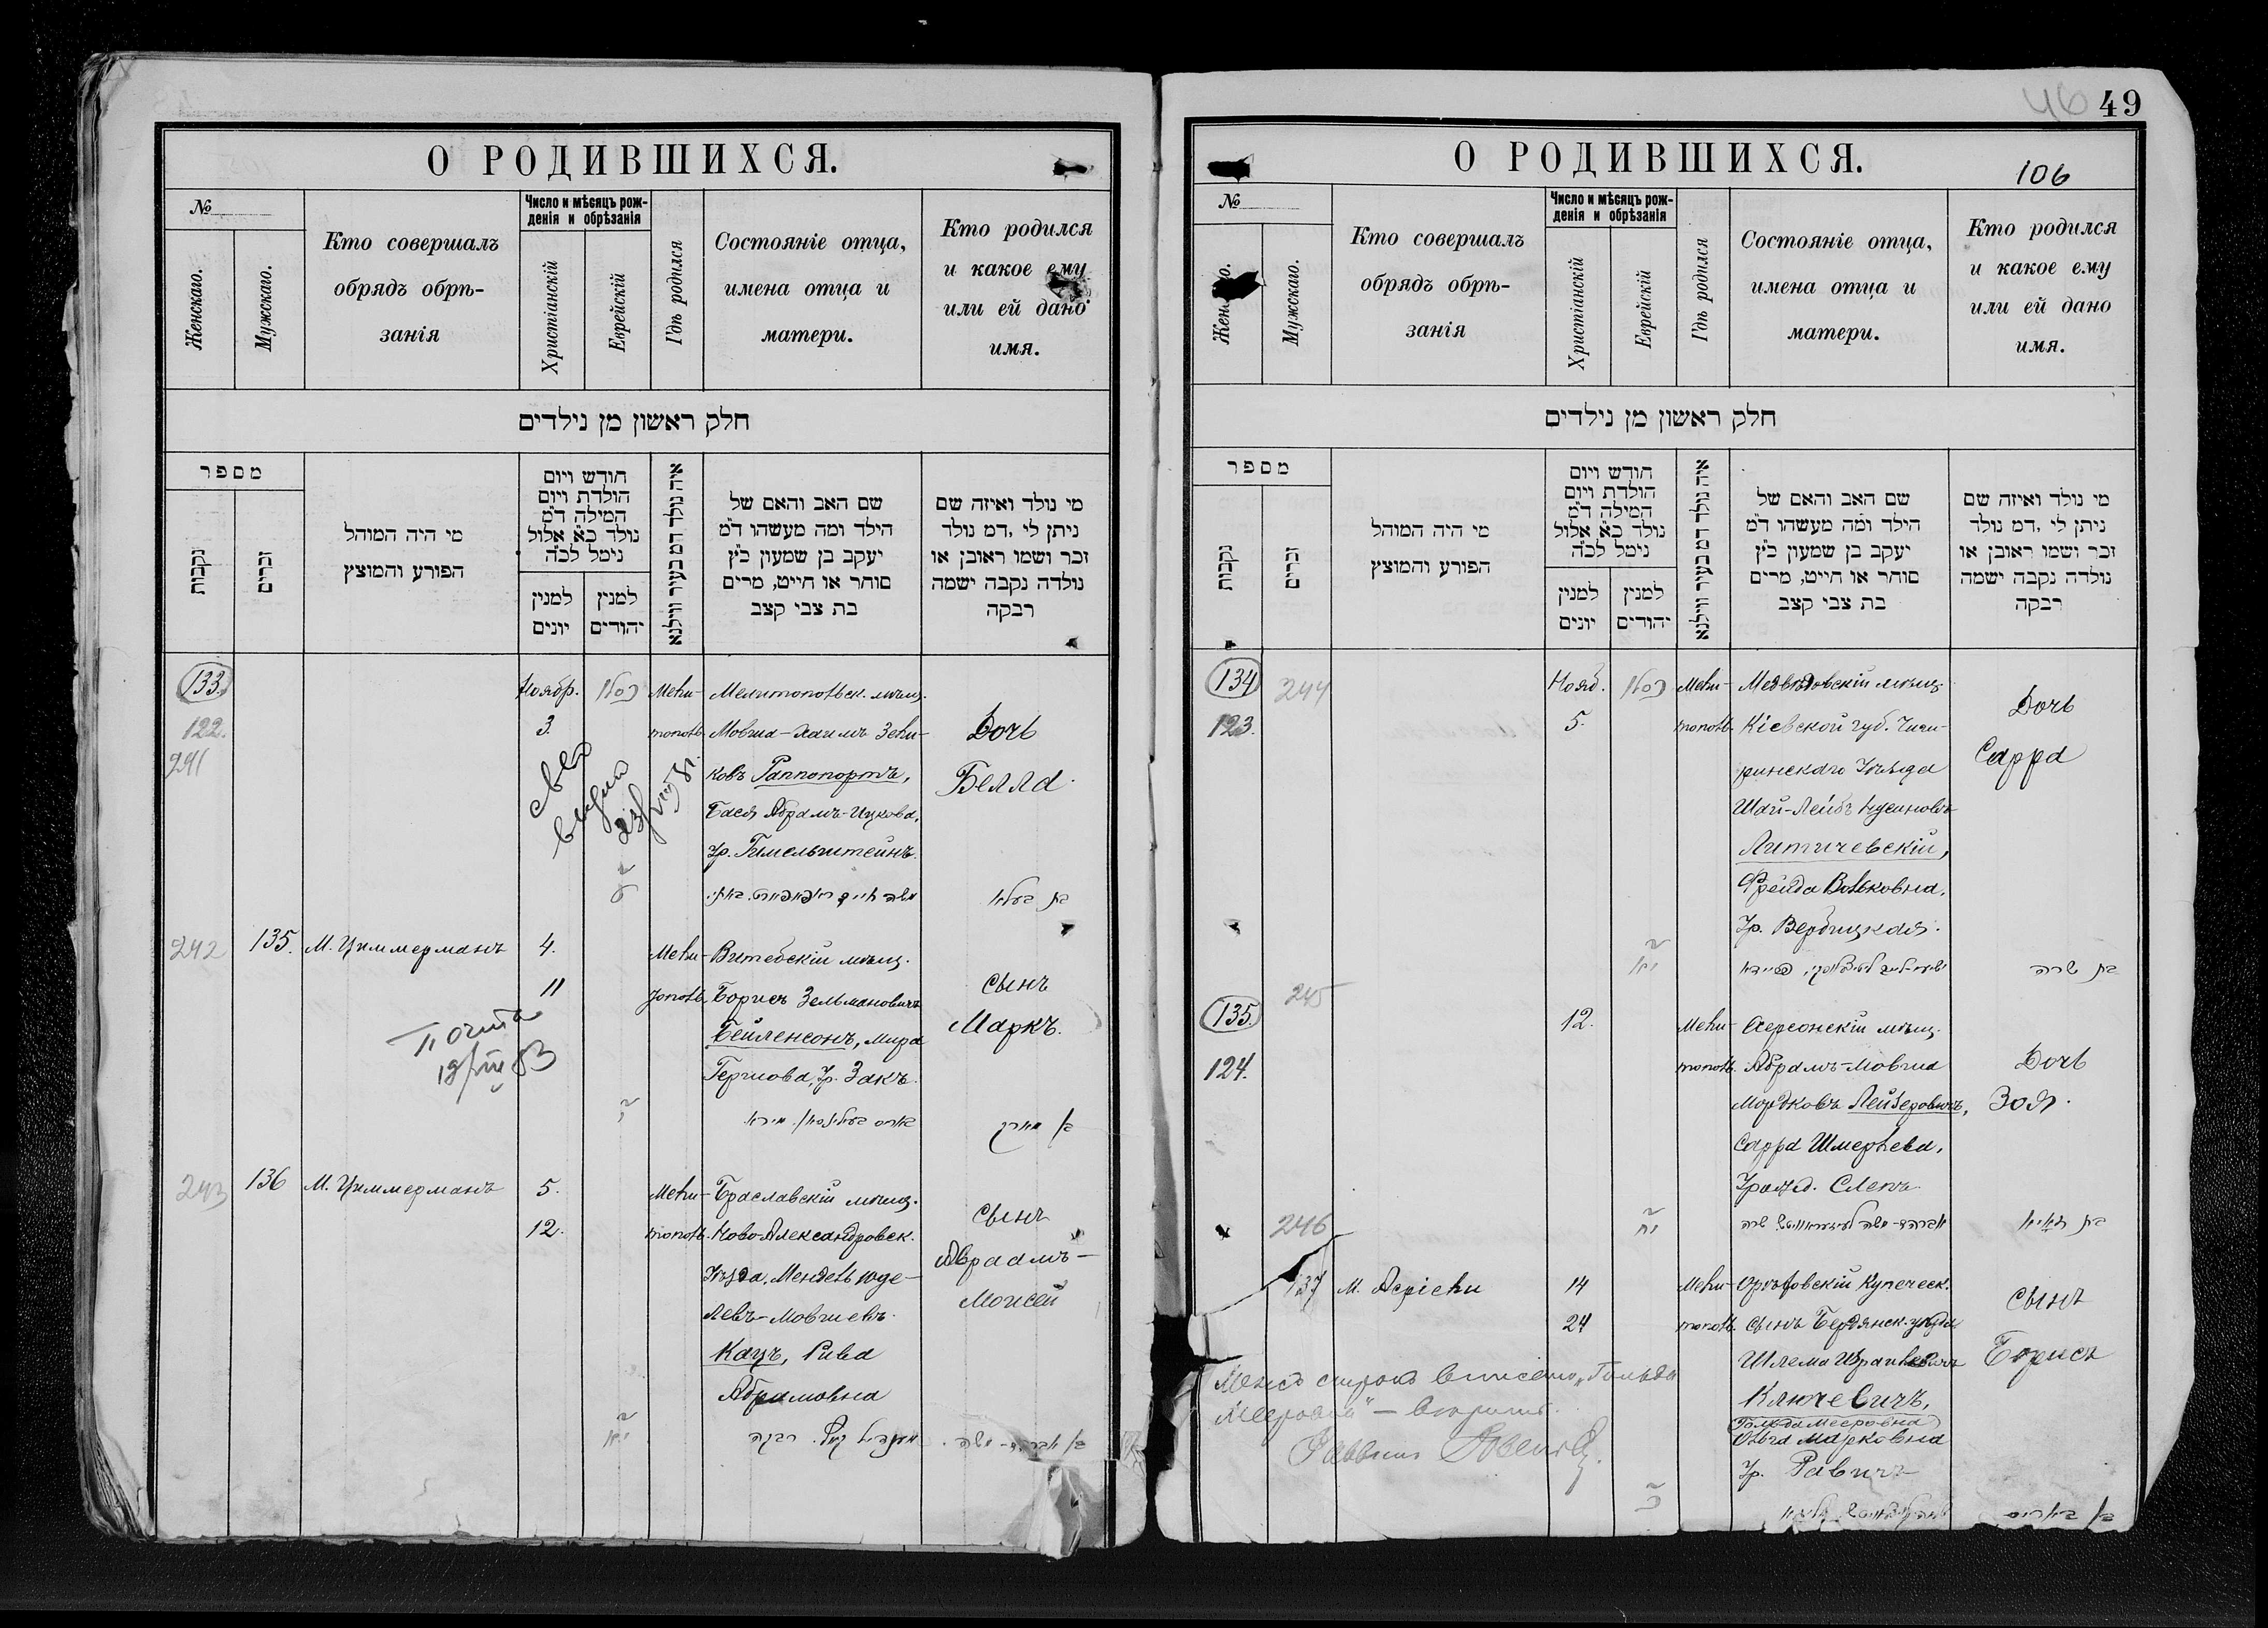 49
46
О РОДИВШИХСЯ.
№
Женскаго.
Мужскаго.
Кто совершалъ
обрядъ обрѣ-
занія
Число и мѣсяцъ рож-
денія и обрѣзанія
Христіанскій
Еврейскій
Гдѣ родился
Состояніе отца,
имена отца и
матери.
Кто родился
и какое ему
или ей дано
имя.
חלק ראשון מן נילדים
מספר
נקבות
זכרים
מי היה המוהל
הפורע והמוצץ
חודש ויום
הולדת ויום
המילה ד״מ
נולד כ״א אלול
נימל לכ״ה
למנין
יונים
למנין
יהודים
איה נולד דמ בעיר ווילנא
שם האב והאם של
הילד ומה מעשהו ד״מ
יעקב בן שמעון כ״ץ
סוחר או חייט, מרים
בת צבי קצב
מי נולד ואיזה שם
ניתן לי, דמ נולד
זכר ושמו ראובן או
נולדה נקבה ישמה
רבקה
133.
122.
241
Ноябр.
3.
כסלו
Мели-
тополь.
Мелитопольск. мѣщ.
Мовша-Хаимъ Зели-
ковъ Раппопортъ,
Бася Абрамъ-Ицкова,
ур. Гимельштейнъ.
Дочь
Белла.
בת בעלא
242
135.
М. Циммерманъ
4.
11
Мели-
тополь.
Витебскій мѣщ.
Борисъ Зельмановичъ
Бейленсонъ, Мира
Гершова, ур. Закъ.
сынъ
Маркъ.
בן מארק
Почта
243
136
М. Циммерманъ
5.
12.
Мели-
тополь.
Браславскій мѣщ.
Ново-Александровск.
уѣзда, Мендель Юде-
левъ-Мовшевъ
Кацъ, Рива
Абрамовна
сынъ
Абрамъ-
Моисей
О РОДИВШИХСЯ.
106
№
Женскаго.
Мужскаго.
Кто совершалъ
обрядъ обрѣ-
занія
Число и мѣсяцъ рож-
денія и обрѣзанія
Христіанскій
Еврейскій
Гдѣ родился
Состояніе отца,
имена отца и
матери.
Кто родился
и какое ему
или ей дано
имя.
חלק ראשון מן נילדים
מספר
נקבות
זכרים
מי היה המוהל
הפורע והמוצץ
חודש ויום
הולדת ויום
המילה ד״מ
נולד כ״א אלול
נימל לכ״ה
למנין
יונים
למנין
יהודים
איה נולד דמ בעיר ווילנא
שם האב והאם של
הילד ומה מעשהו ד״מ
יעקב בן שמעון כ״ץ
סוחר או חייט, מרים
בת צבי קצב
מי נולד ואיזה שם
ניתן לי, דמ נולד
זכר ושמו ראובן או
נולדה נקבה ישמה
רבקה
134
244
123.
Нояб.
5.
כסלו
Мели-
тополь.
Медвѣдовскій мѣщ.
Кіевской губ. Чиги-
ринскаго уѣзда
Шай-Лейбъ Нусиновъ
Литичевскій,
Фрейда Вольковна,
ур. Вербицкая.
Дочь
Сарра
בת שרה
245
135.
124.
12.
Мели-
тополь.
Херсонскій мѣщ.
Абрамъ-Мовша
Мордковъ Лейзеровичъ,
Сарра Шмерлева,
урожд. Слепъ
Дочь
Зоя.
246
137
М. Асріели
14
24
Мели-
тополь.
Орѣховскій Купеческ.
сынъ Бердянск. уѣзда
Шлема Израилевичъ
Ключевичъ,
Гольда Мееровна
Ольга Марковна
ур. Равичъ
сынъ
Борисъ
Между строкъ вписано „Гольда
Мееровна" — вѣрить.
Раввинъ